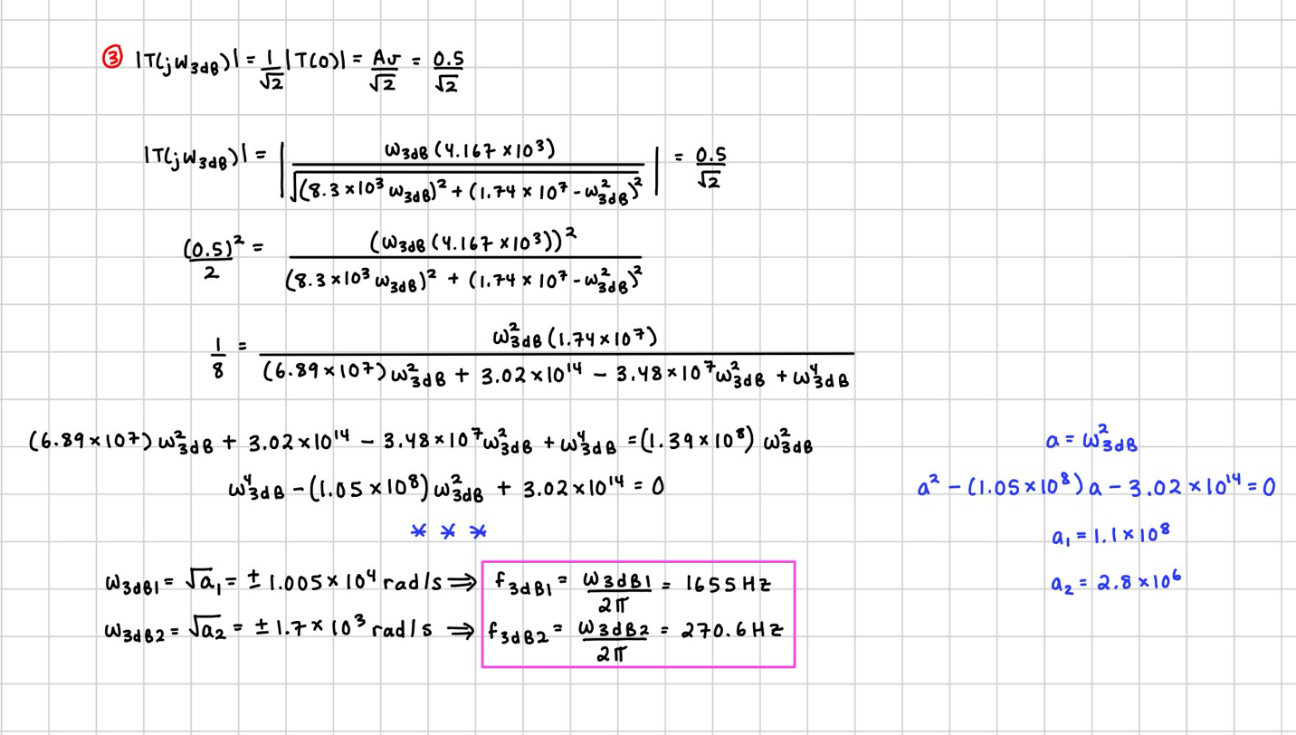 ③ |T(jω3dB)| = 1/√2 |T(0)| = Av/√2 = 0.5/√2
|T(jω3dB)| = | ω3dB (4.167 × 10³) / √((8.3 × 10³ ω3dB)² + (1.74 × 10⁷ - ω²3dB)²) | = 0.5/√2
(0.5)²/2 = (ω3dB (4.167 × 10³))² / ((8.3 × 10³ ω3dB)² + (1.74 × 10⁷ - ω²3dB)²)
1/8 = ω²3dB (1.74 × 10⁷) / ((6.89 × 10⁷) ω²3dB + 3.02 × 10¹⁴ - 3.48 × 10⁷ ω²3dB + ω⁴3dB)
(6.89 × 10⁷) ω²3dB + 3.02 × 10¹⁴ - 3.48 × 10⁷ ω²3dB + ω⁴3dB = (1.39 × 10⁸) ω²3dB
ω⁴3dB - (1.05 × 10⁸) ω²3dB + 3.02 × 10¹⁴ = 0
* * *
a = ω²3dB
a² - (1.05 × 10⁸) a - 3.02 × 10¹⁴ = 0
a₁ = 1.1 × 10⁸
a₂ = 2.8 × 10⁶
ω3dB1 = √a₁ = ± 1.005 × 10⁴ rad/s ⇒ f3dB1 = ω3dB1/2π = 1655 Hz
ω3dB2 = √a₂ = ± 1.7 × 10³ rad/s ⇒ f3dB2 = ω3dB2/2π = 270.6 Hz